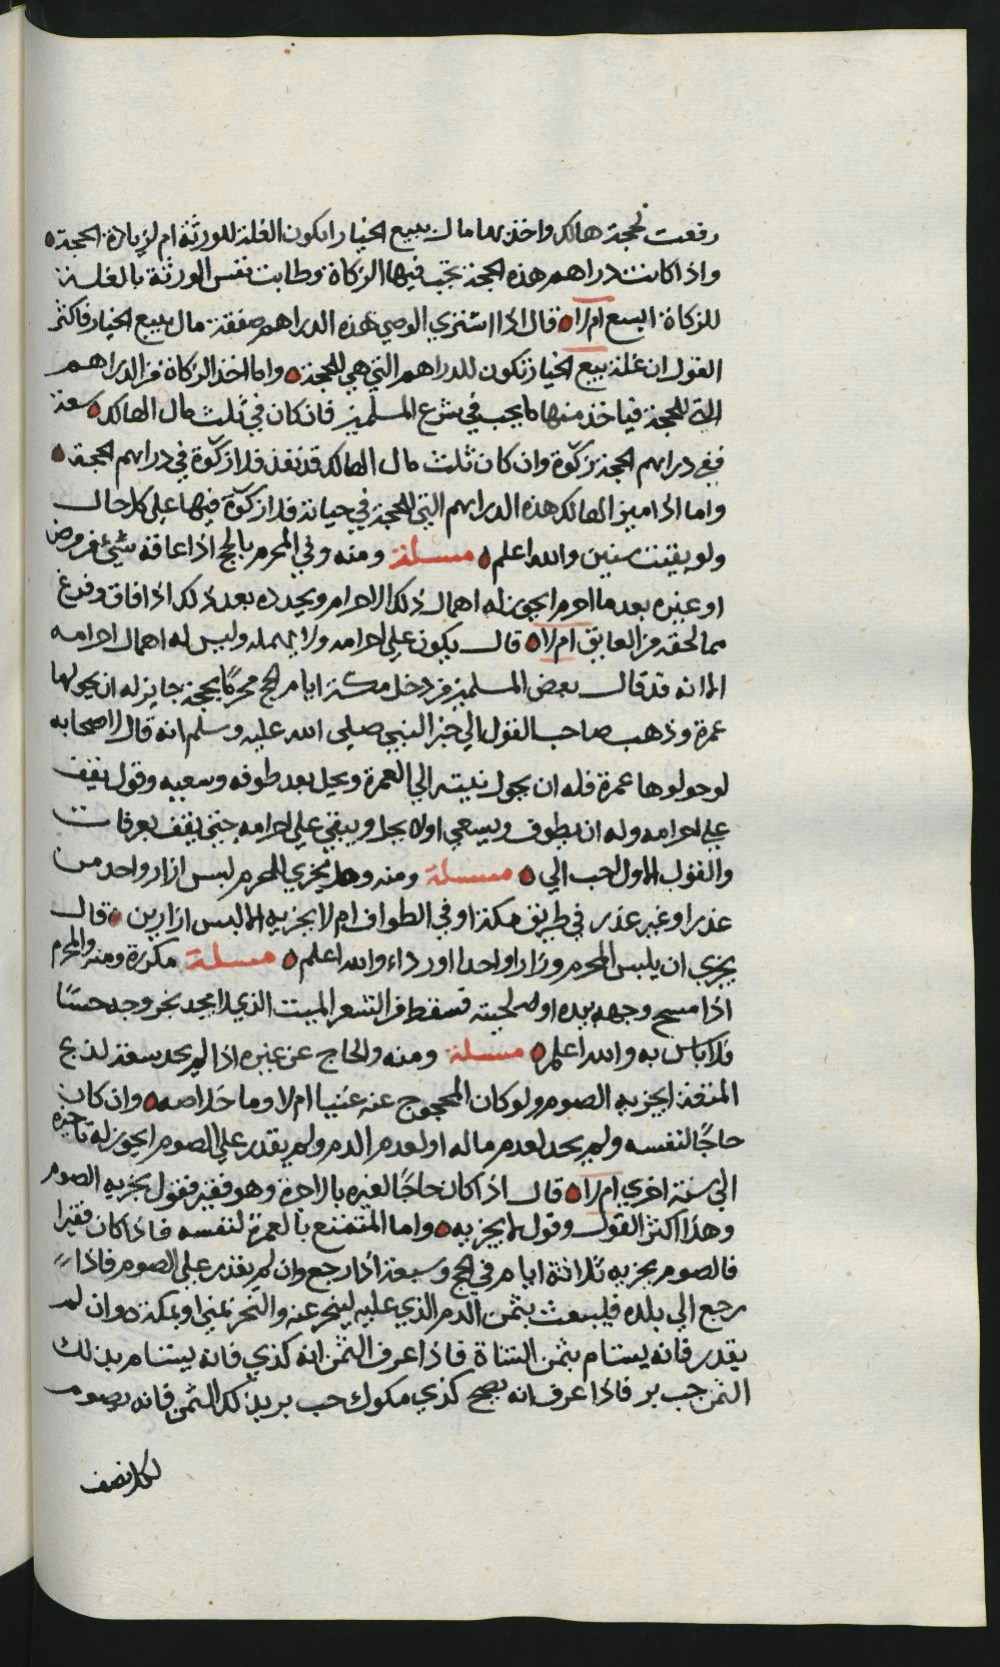 رفعت لحجة هالك واخذ بها مال ببيع الخيار ايكون الغلة للورثة ام لزيادة الحجة
واذا كانت دراهم هذه الحجة تجب فيها الزكاة وطابت نفس الورثة بالغلة
للزكاة ايسع ام لا قال اذا اشتري الوصي بهذه الدراهم صفقة مال ببيع الخيار فاكثر
القول ان غلة بيع الخيار تكون للدراهم التي هي للحجة واما اخذ الزكاة من الدراهم
التي للحجة فياخذ منها ما يجب في شرع المسلمين فان كان في ثلث مال الهالك سعة
ففي دراهم الحجة زكوة وان كان ثلث مال الهالك قد نفذ فلا زكوة في دراهم الحجة
واما اذا ميز الهالك هذه الدراهم التي للحجة في حياته فلا زكوة فيها علي كل حال
ولو بقيت سنين والله اعلم مسئلة ومنه وفي المحرم بالحج اذا عاقه شيء من مرض
او غيره بعد ما احرم ايجوز له اهمال ذلك الاحرام ويجدده بعد ذلك اذا فاق وفرغ
مما لحقه من العايق ام لا قال يكون علي احرامه ولا يهمله وليس له اهمال احرامه
الا انه قد قال بعض المسلمين من دخل مكة ايام الحج محرمًا بحجة جايز له ان يحولها
عمرة وذهب صاحب القول الي خبر النبي صلي الله عليه وسلم انه قال لاصحابه
لو حولوها عمرة فله ان يحول نيته الي العمرة ويحل بعد طوفه وسعيه وقول يقف
علي احرامه وله ان يطوف ويسعي اولا يحل ويبقي علي احرامه حتي يقف بعرفات
والقول الاول احب الي مسئلة ومنه وهل يجزي للمحرم لبس ازار واحد من
عذر او غير عذر في طريق مكة او في الطواف ام لا يجزيه الا لبس ازارين قال
يجزي ان يلبس المحرم وزارا واحدا او رداء والله اعلم مسئلة مكررة ومنه والمحرم
اذا مسح وجهه بيده او لحيته فسقط من الشعر الميت الذي لا يجد نحر وجه حسًا
فلا باس به والله اعلم مسئلة ومنه والحاج عن غيره اذا لم يجد سعة لذبح
المتعة ايجزيه الصوم ولو كان المحجوج عنه غنيا ام لا وما خلاصه وان كان
حاجًا لنفسه ولم يجد لعدم ماله او لعدم الدم ولم يقدر علي الصوم ايجوز له تاخيره
الي سنة اخري ام لا قال اذا كان حاجًا لغيره بالاجرة وهو فقير فقول يجزيه الصوم
وهذا اكثر القول وقول لا يجزيه واما المتمتع بالعمرة لنفسه فاذا كان فقيرا
فالصوم يجزيه ثلاثة ايام في الحج وسبعة اذا رجع وان لم يقدر علي الصوم فاذا
رجع الي بلده فليبعث بثمن الدم الذي عليه لينحر عنه والنحر بمني او بمكة وان لم
يقدر فانه يستام بثمن الشاة فاذا عرف الثمن انه كذي فانه يستام بذلك
الثمن حب بر فاذا عرف انه يصح كذي مكوك حب بر بذلك الثمن فانه يصوم
لكل نصف